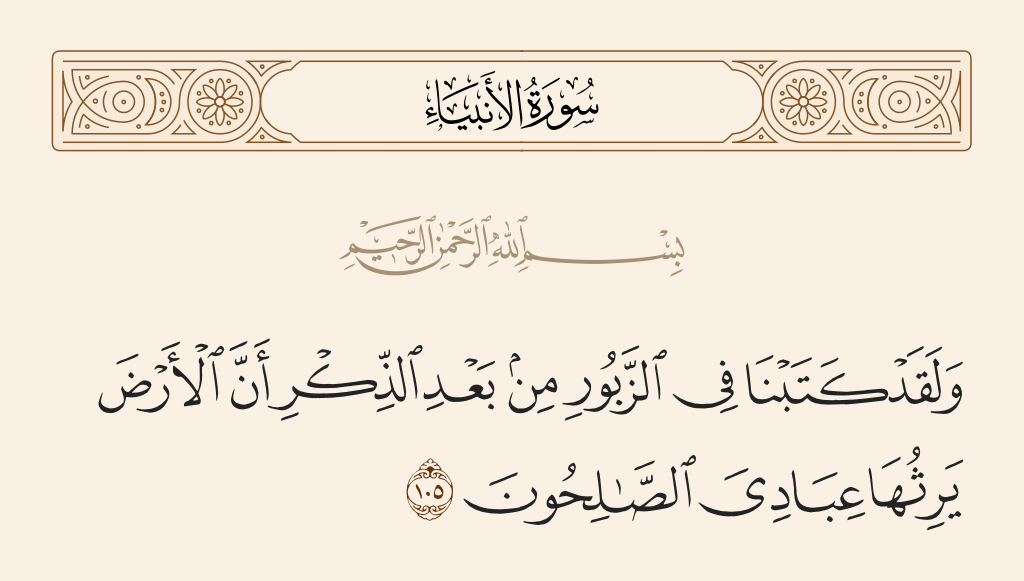 سُورَةُ الأَنبِيَاءِ
بِسْمِ ٱللَّهِ ٱلرَّحْمَٰنِ ٱلرَّحِيمِ
وَلَقَدْ كَتَبْنَا فِى ٱلزَّبُورِ مِنۢ بَعْدِ ٱلذِّكْرِ أَنَّ ٱلْأَرْضَ
يَرِثُهَا عِبَادِىَ ٱلصَّـٰلِحُونَ ١٠٥